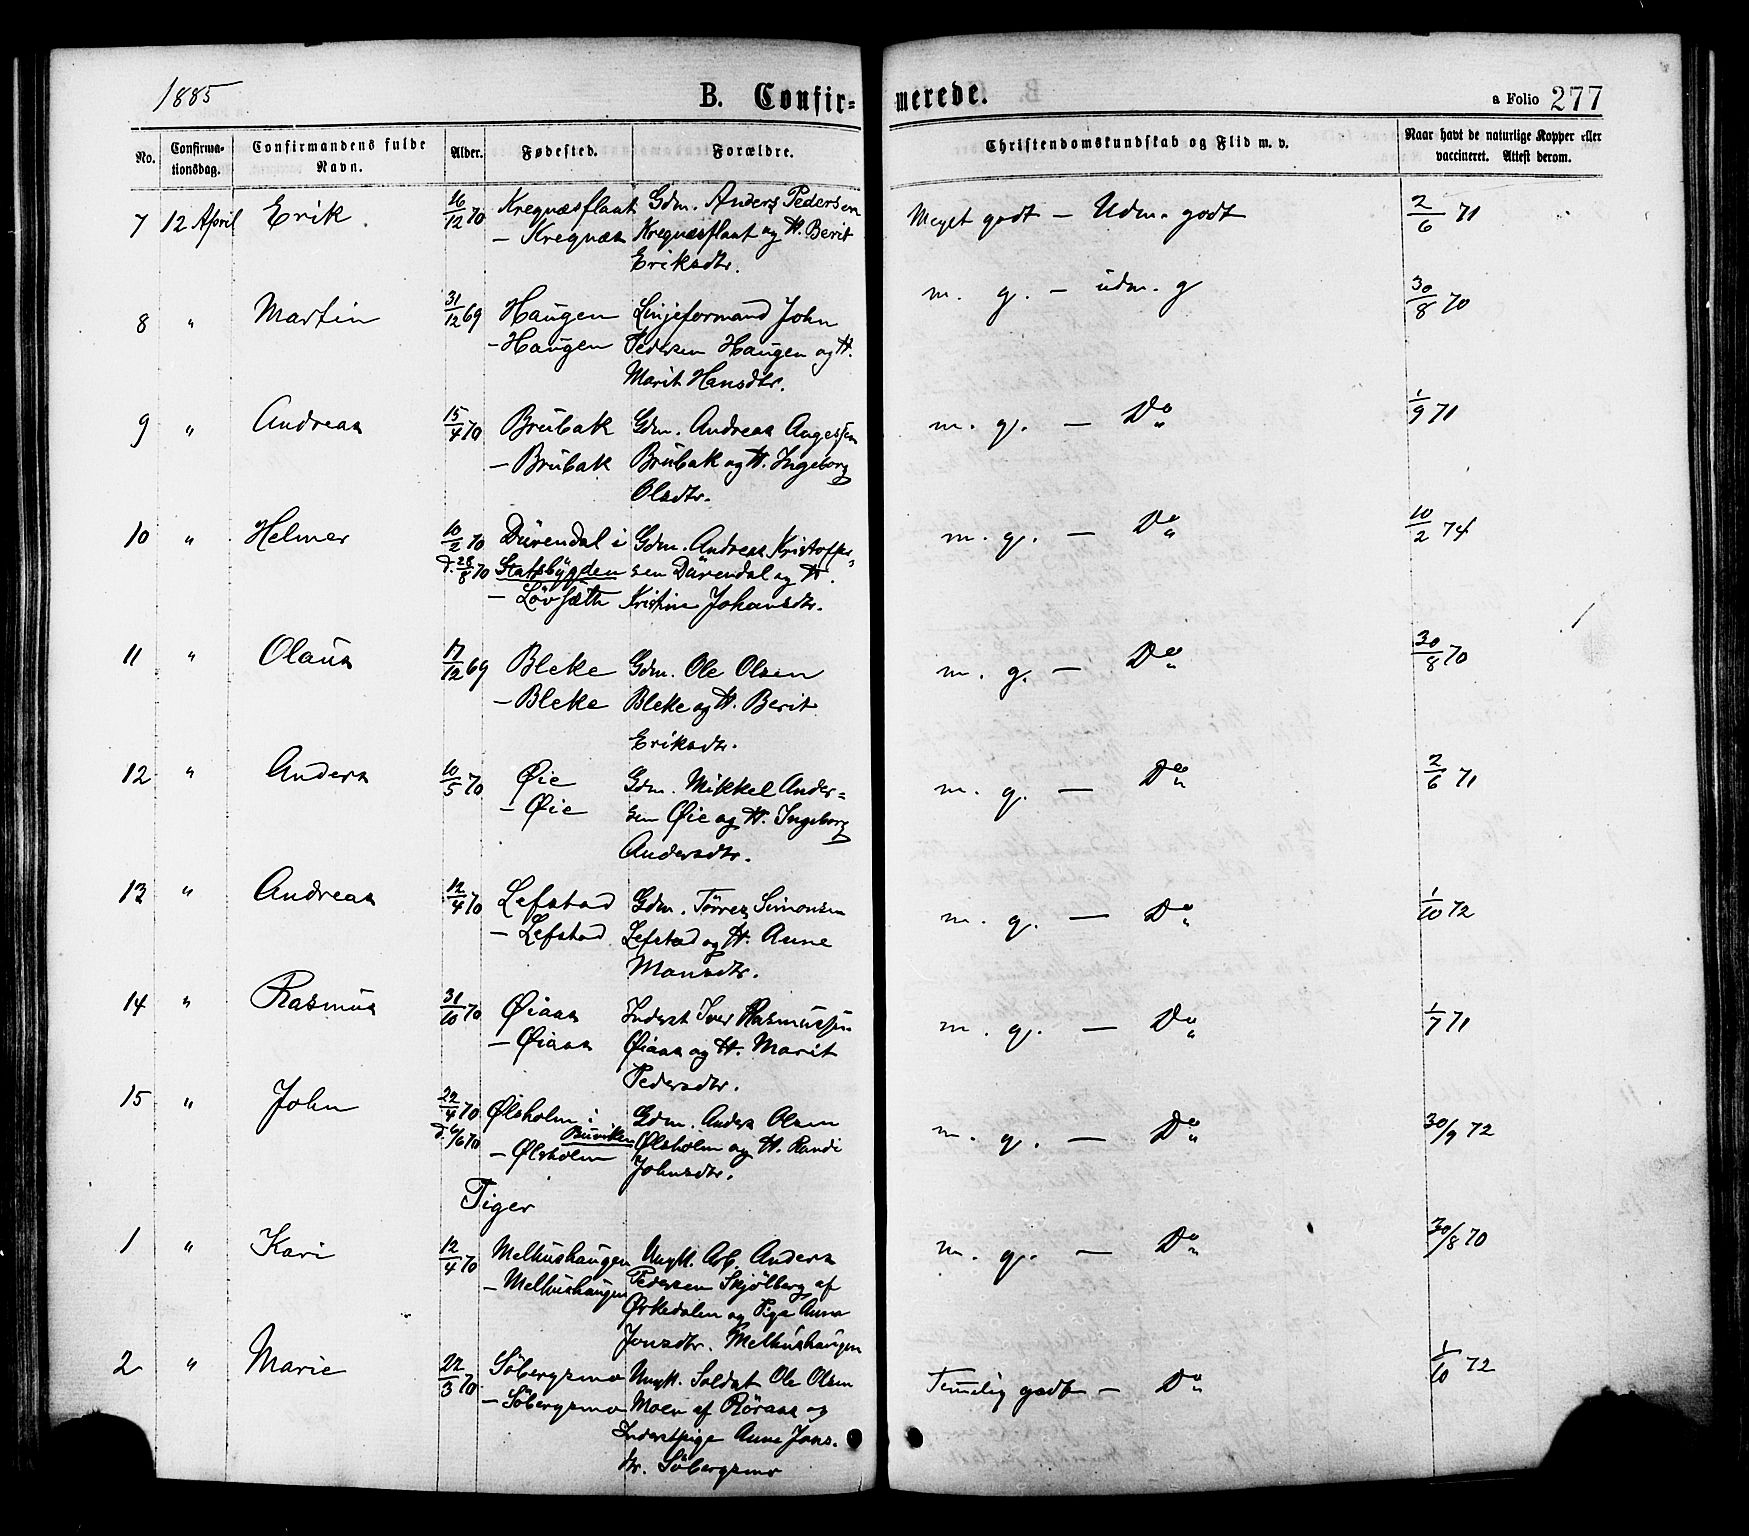 1885
B. Confirmerede.
a Folio 277
No. Confirmationsdag. Confirmandens fulde Navn. Alder. Fødested. Forældre. Christendomskundskab og Flid m. v. Naar havt de naturlige Kopper eller vaccineret. Attest derom.
7 12 April Erik 16/12 70 Kregnæsflaat Gdm. Anders Pedersen Meget godt — Udm. godt 2/6 71
— Kregnæs Kregnæsflaat og H. Berit
Eriksdtr.
8 " Martin 31/12 69 Haugen Linjeformand John m. g. — udm. g 30/8 70
— Haugen Pedersen Haugen og H.
Marit Hansdtr.
9 " Andreas 15/4 70 Brubak Gdm. Andreas Aagessen m. g. — Do 1/9 71
— Brubak Brubak og H. Ingeborg
Olsdtr.
10 " Helmer 10/2 70 Dürendal i Gdm. Andreas Kristoffer= m. g. — Do 10/2 74
d. 28/8 70 Statsbygden sen Dürendal og H.
— Løvsætth Kristine Johansdtr.
11 " Olaus 17/12 69 Bleke Gdm. Ole Olsen m. g. — Do 30/8 70
— Bleke Bleke og H. Berit
Eriksdtr.
12 " Anders 10/5 70 Øie Gdm. Mikkel Ander= m. g. — Do 2/6 71
— Øie sen Øie og H. Ingeborg
Andersdtr.
13 " Andreas 12/4 70 Lefstad Gdm. Tørres Simonsen m. g. — Do 1/10 72
— Lefstad Lefstad og H. Anne
Monsdtr.
14 " Rasmus 31/10 70 Øiaas Inderst Iver Rasmussen m. g. — Do 1/7 71
— Øiaas Øiaas og H. Marit
Pedersdtr.
15 " John 22/4 70 Ølsholm i Gdm. Anders Olsen m. g. — Do 30/9 72
d. 6/6 70 Buviken Ølsholm og H. Randi
— Ølsholm Johnsdtr.
Piger
1 " Kari 12/4 70 Melhushaugen Ungk. Arb. Anders m. g. — Do 30/8 70
— Melhushaugen Pedersen Skjølberg af
Ørkedalen og Pige Anne
Jonsdtr. Melhushaugen
2 " Marie 22/3 70 Søbergsmo Ungk. Soldat Ole Olsen Temelig godt — Do 1/10 72
— Søbergsmo Moen af Røraas og
Inderstpige Anne Jons.
dtr. Søbergsmo